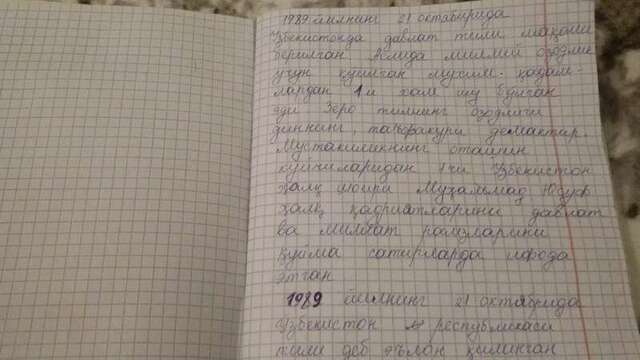 1989 йилнинг 21 октябирида
Ўзбекистонда давлат тили мақоми
берилган Аслида миллий озодлик
учун қуйилган муҳим қадам-
лардан 1и хам шу бўлган
эди Зеро тилнинг озодлиги
диннинг, тафаккури демактир.
Мустакилликнинг оташин
куйчиларидан 1чи Ўзбекистон
халқ шоири Муҳаммад Юсуф
халқ қадриятларини давлат
ва миллат рамзларини
қуйма сатирларда ифода
этган
1989 йилнинг 21 октябрида
Ўзбекистон республикаси
тили деб эълон қилинган